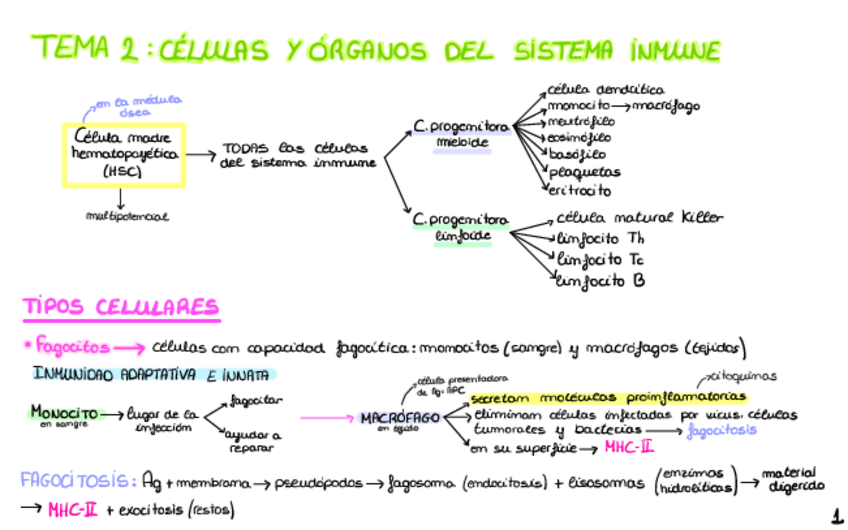 TEMA 2: CÉLULAS Y ÓRGANOS DEL SISTEMA INMUNE
en la médula
ósea
Célula madre
hematopoyética
(HSC)
multipotencial
TODAS las células
del sistema inmune
C. progenitora
mieloide
célula dendrítica
monocito → macrófago
neutrófilo
eosinófilo
basófilo
plaquetas
eritrocito
C. progenitora
linfoide
célula natural Killer
linfocito Th
linfocito Tc
linfocito B
TIPOS CELULARES
• Fagocitos → células con capacidad fagocítica: monocitos (sangre) y macrófagos (tejidos)
INMUNIDAD ADAPTATIVA E INNATA
MONOCITO → lugar de la
en sangre
infección
fagocitar
ayudar a
reparar
→ MACRÓFAGO
en tejido
célula presentadora
de Ag: APC
citoquinas
secretan moléculas proinflamatorias
eliminan células infectadas por virus, células
tumorales y bacterias → fagocitosis
en su superficie → MHC-II
FAGOCITOSIS: Ag + membrana → pseudópodos → fagosoma (endocitosis) + lisosomas (enzimas hidrolíticas) → material digerido
→ MHC-II + exocitosis (restos)
1